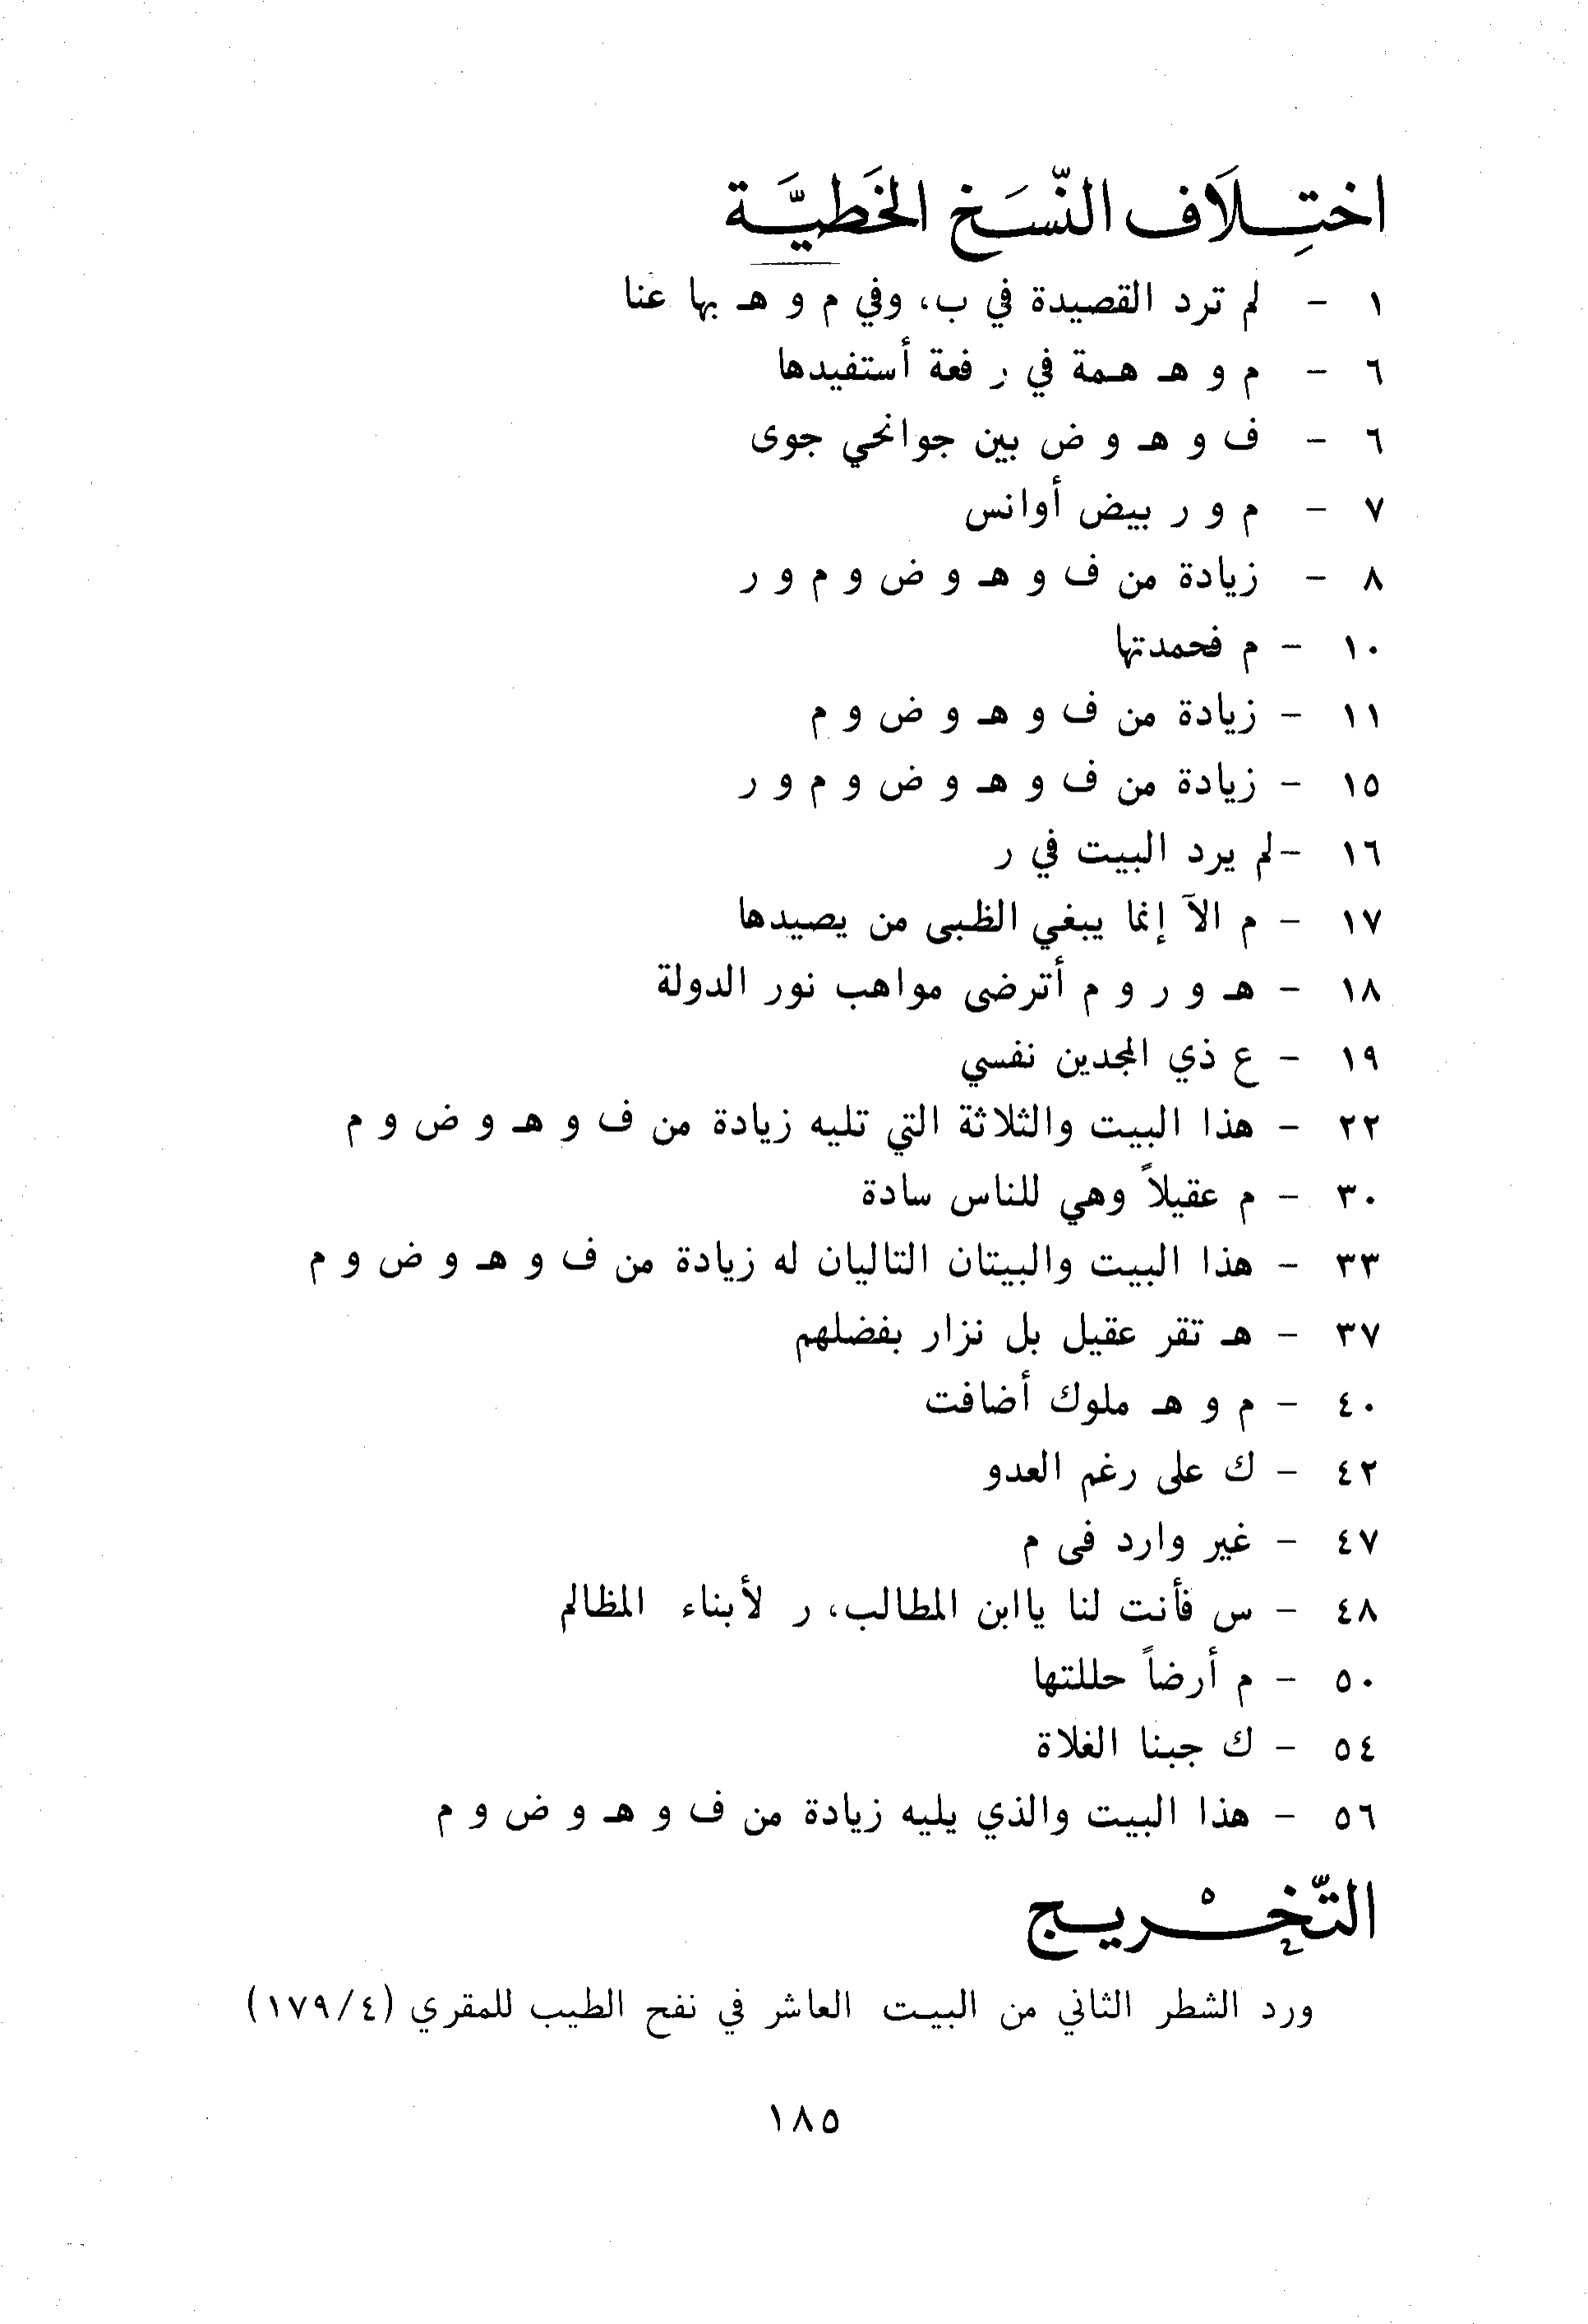 اختِلَاف النّسَخ الخَطيَّة
١ - لم ترد القصيدة في ب، وفي م و هـ بها عنا
٦ - م و هـ همة في ر فعة أستفيدها
٦ - ف و هـ و ض بين جوانحي جوى
٧ - م و ر بيض أوانس
٨ - زيادة من ف و هـ و ض و م و ر
١٠ - م فحمدتها
١١ - زيادة من ف و هـ و ض و م
١٥ - زيادة من ف و هـ و ض و م و ر
١٦ -لم يرد البيت في ر
١٧ - م الآ إنما يبغي الظبى من يصيدها
١٨ - هـ و ر و م أترضى مواهب نور الدولة
١٩ - ع ذي المجدين نفسي
٢٢ - هذا البيت والثلاثة التي تليه زيادة من ف و هـ و ض و م
٣٠ - م عقيلاً وهي للناس سادة
٣٣ - هذا البيت والبيتان التاليان له زيادة من ف و هـ و ض و م
٣٧ - هـ تقر عقيل بل نزار بفضلهم
٤٠ - م و هـ ملوك أضافت
٤٢ - ك على رغم العدو
٤٧ - غير وارد فى م
٤٨ - س فأنت لنا ياابن المطالب، ر لأبناء المظالم
٥٠ - م أرضاً حللتها
٥٤ - ك جبنا الغلاة
٥٦ - هذا البيت والذي يليه زيادة من ف و هـ و ض و م
التّخْريج
ورد الشطر الثاني من البيت العاشر في نفح الطيب للمقري (١٧٩/٤)
١٨٥